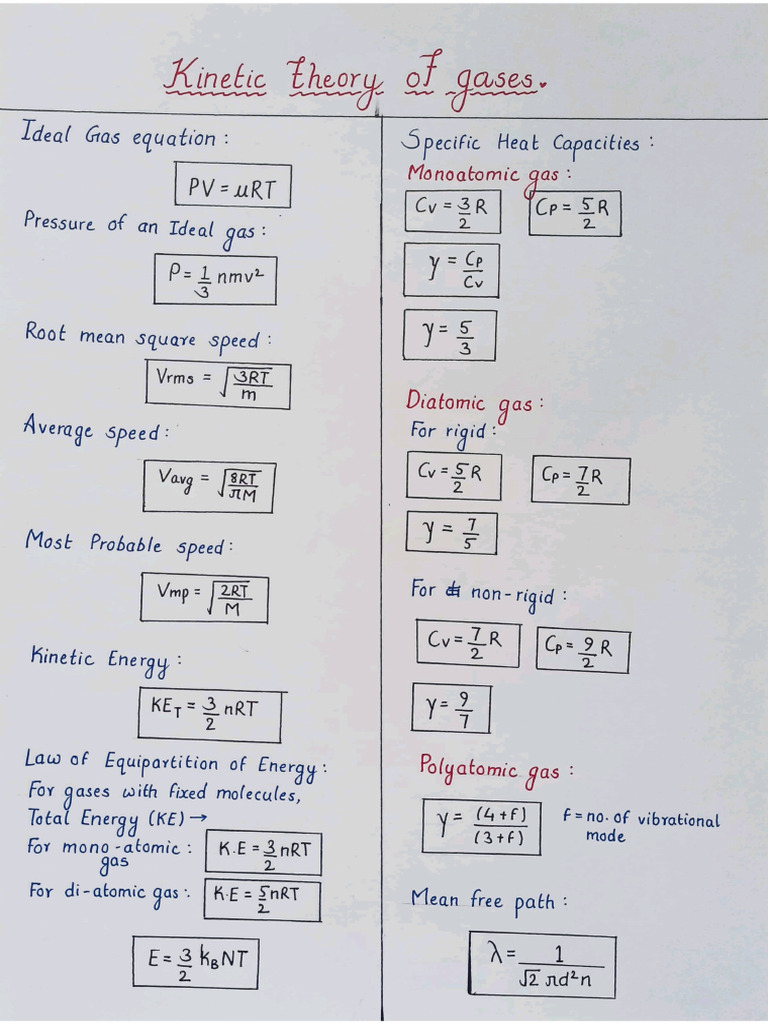 Kinetic theory of gases.
Ideal Gas equation :
PV = μRT
Pressure of an Ideal gas :
P = 1/3 nmv²
Root mean square speed :
Vrms = √(3RT/m)
Average speed :
Vavg = √(8RT/πM)
Most Probable speed :
Vmp = √(2RT/M)
Kinetic Energy :
KE_T = 3/2 nRT
Law of Equipartition of Energy :
For gases with fixed molecules,
Total Energy (KE) →
For mono-atomic gas : K.E = 3/2 nRT
For di-atomic gas : K.E = 5/2 nRT
E = 3/2 k_B NT
Specific Heat Capacities :
Monoatomic gas :
Cv = 3/2 R Cp = 5/2 R
γ = Cp/Cv
γ = 5/3
Diatomic gas :
For rigid :
Cv = 5/2 R Cp = 7/2 R
γ = 7/5
For non-rigid :
Cv = 7/2 R Cp = 9/2 R
γ = 9/7
Polyatomic gas :
γ = (4+f)/(3+f) f = no. of vibrational
mode
Mean free path :
λ = 1/(√2 πd²n)